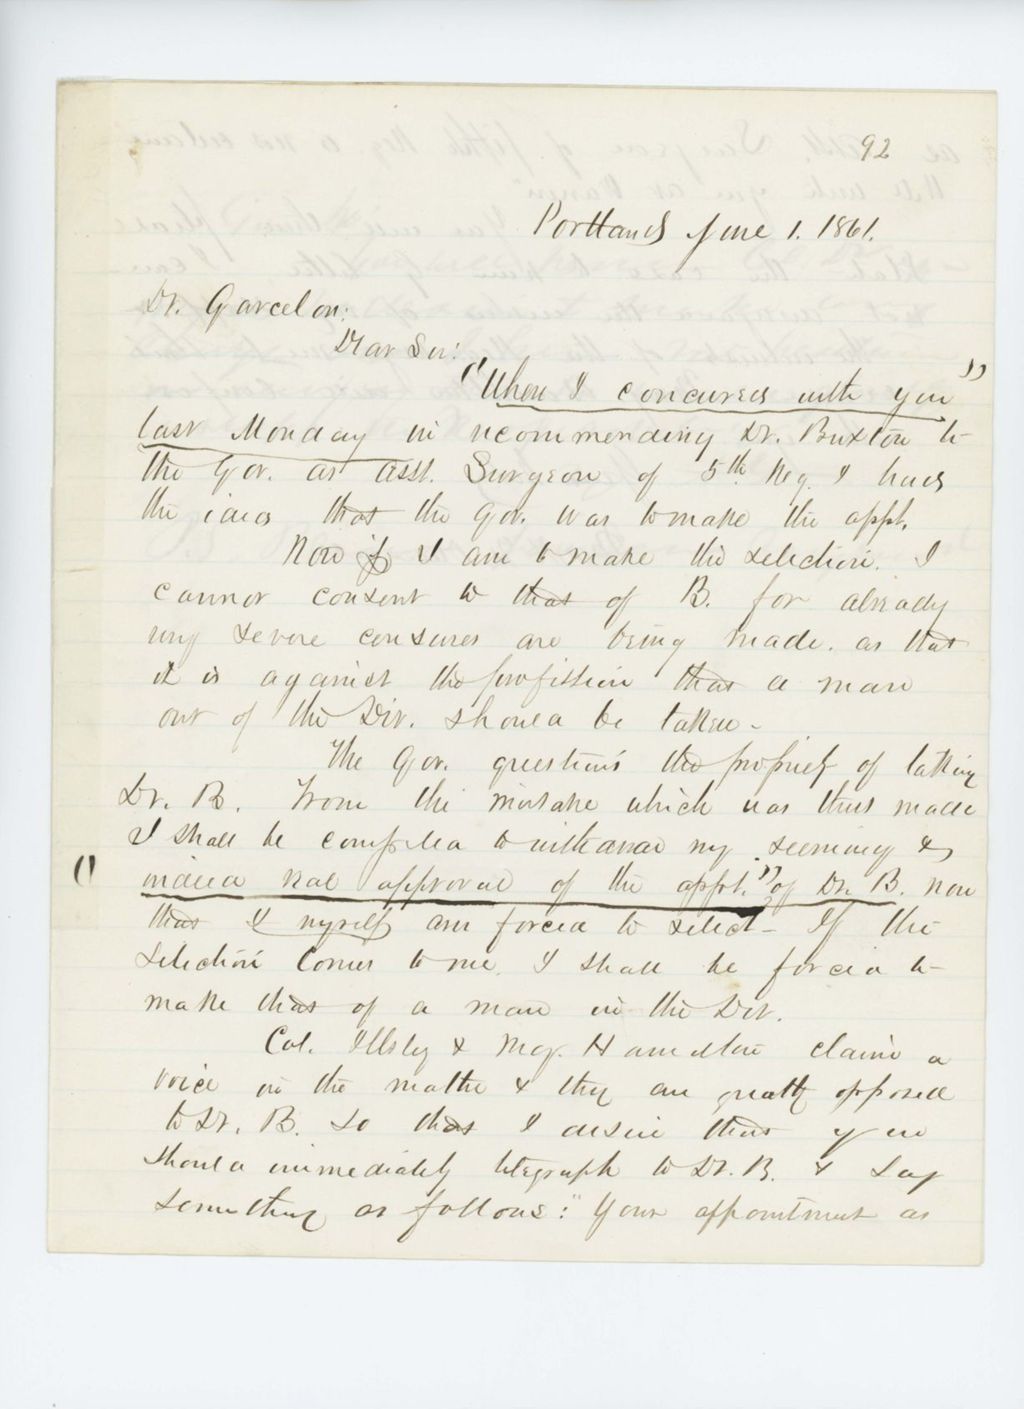 92
Portland June 1. 1861.
Dr. Garcelon:
Dear Sir:
"When I concurred with you"
last Monday in recommending Dr. Buxton to
the Gov. as asst. Surgeon of 5th Reg. I had
the idea that the Gov. was to make the appt.
Now if I am to make the selection. I
cannot consent to that of B. for already
very severe censures are being made. as that
it is against the profession that a man
out of the Div. should be taken -
The Gov. questions the propriety of taking
Dr. B. From the mistake which was thus made
I shall be compelled to withdraw my seeming &
"indeed real approval of the appt." of Dr. B. now
that I myself am forced to select - If the
selection comes to me, I shall be forced to
make that of a man in the Div.
Col. Illsley & Maj. Hamilton claim a
voice in the matter & they are greatly opposed
to Dr. B. so that I desire that you
should immediately telegraph to Dr. B. & say
something as follows: "Your appointment as